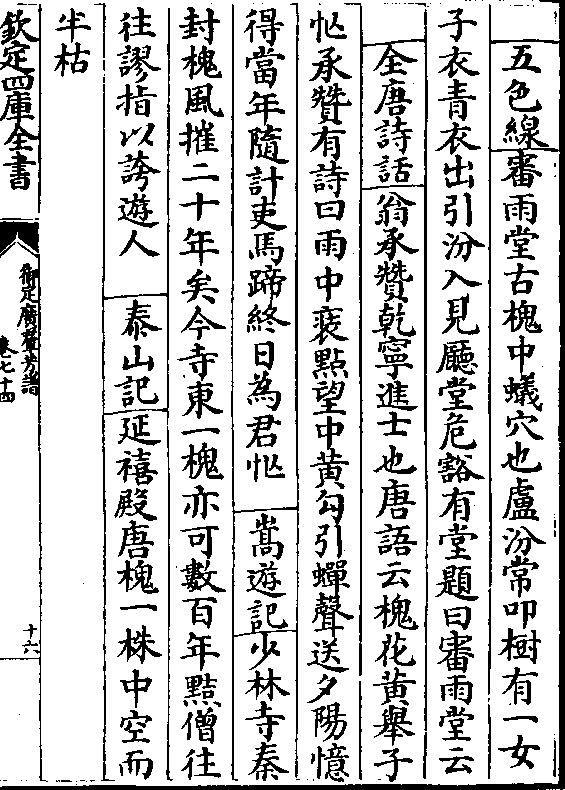 五色線審雨堂古槐中蟻穴也盧汾常叩樹有一女
子衣青衣出引汾入見廳堂危豁有堂題曰審雨堂云
全唐詩話翁承贊乾寧進士也唐語云槐花黃舉子
忙承贊有詩曰雨中裛點望中黃勾引蟬聲送夕陽憶
得當年隨計吏馬蹄終日為君忙 嵩遊記少林寺秦
封槐風摧二十年矣今寺東一槐亦可數百年黠僧往
往謬指以誇遊人 泰山記延禧殿唐槐一株中空而
半枯
欽定四庫全書
御定廣群芳譜
卷七十四
十六